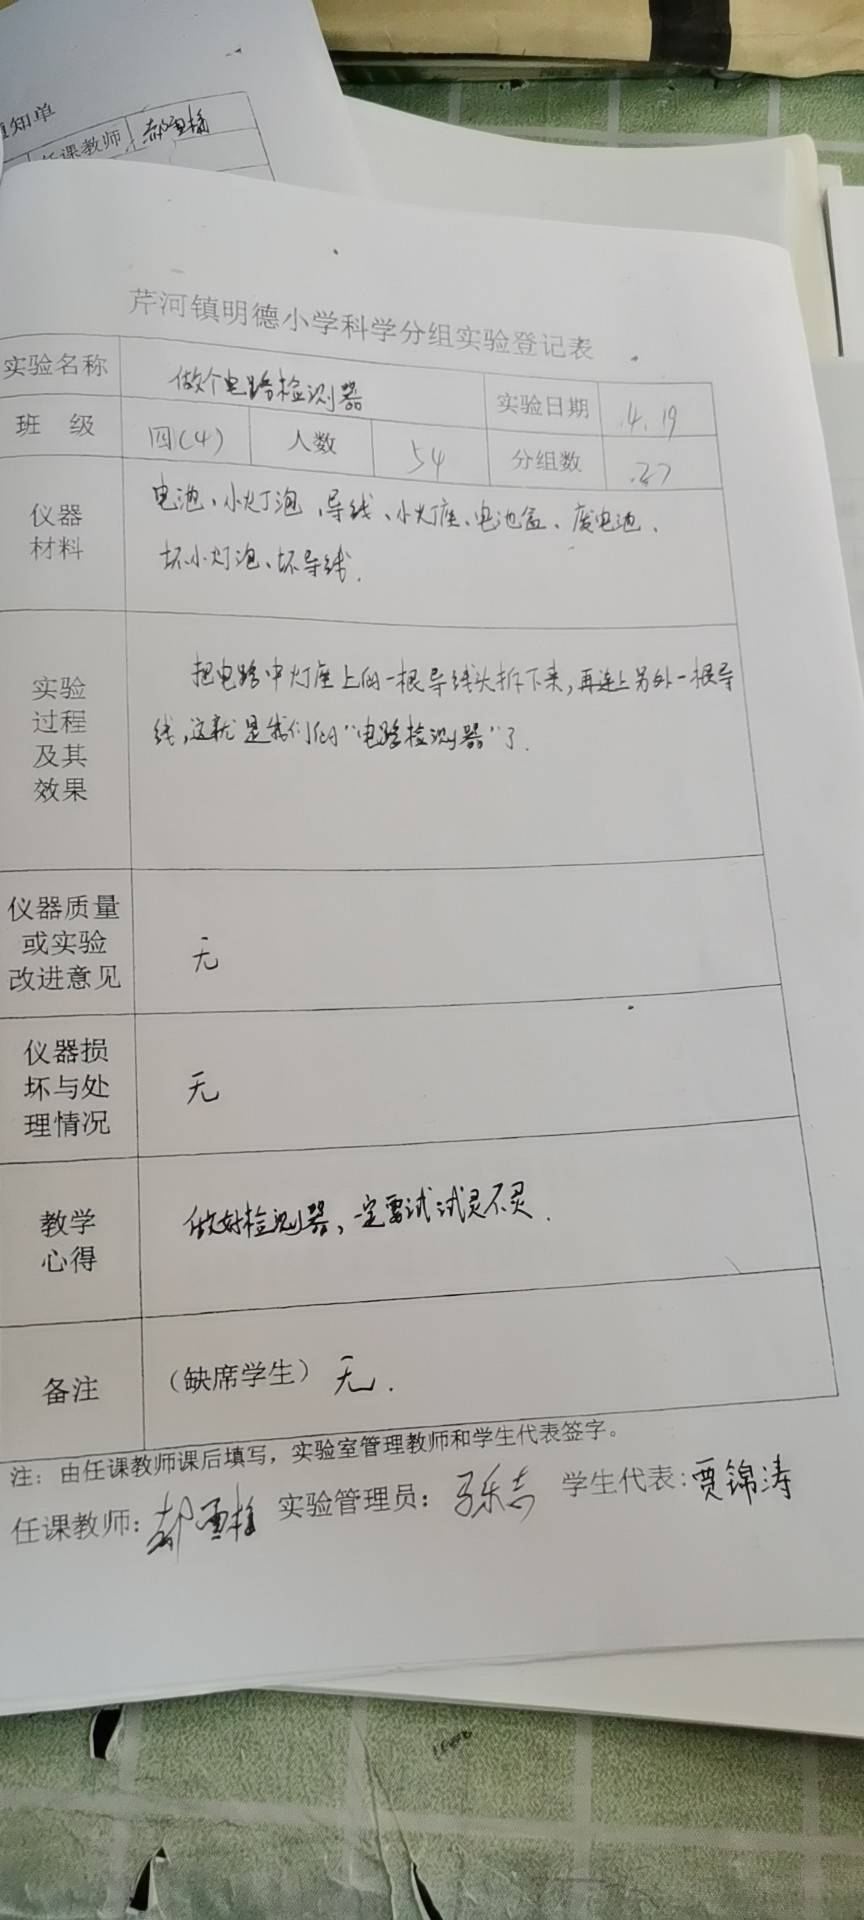 知单
任课教师
芹河镇明德小学科学分组实验登记表
实验名称 做个电路检测器 实验日期 4.19
班级 四(4) 人数 54 分组数 27
仪器材料 电池、小灯泡、导线、小灯座、电池盒、废电池、
坏小灯泡、坏导线.
实验过程及其效果 把电路中灯座上的一根导线头拆下来,再连上另外一根导
线,这就是我们的“电路检测器”了.
仪器质量或实验改进意见 无
仪器损坏与处理情况 无
教学心得 做好检测器,一定要试试灵不灵.
备注 (缺席学生) 无.
注:由任课教师课后填写,实验室管理教师和学生代表签字。
任课教师: 实验管理员: 学生代表:贾锦涛